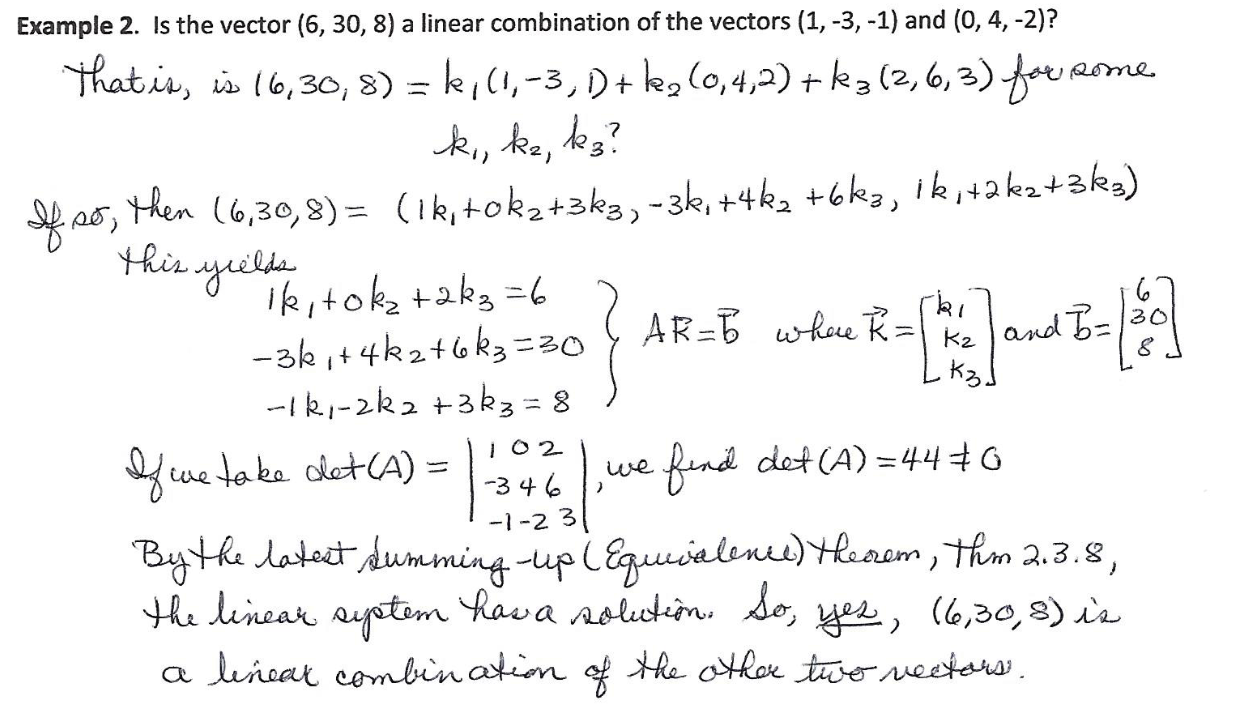 Example 2. Is the vector (6, 30, 8) a linear combination of the vectors (1, -3, -1) and (0, 4, -2)?
That is, is (6,30,8) = k₁(1,-3,1) + k₂(0,4,2) + k₃(2,6,3) for some
k₁, k₂, k₃?
If so, then (6,30,8) = (1k₁+0k₂+3k₃, -3k₁+4k₂+6k₃, 1k₁+2k₂+3k₃)
this yields
1k₁+0k₂+2k₃=6
-3k₁+4k₂+6k₃=30 } Ak⃗=b⃗ where k⃗=[k₁ k₂ k₃] and b⃗=[6 30 8]
-1k₁-2k₂+3k₃=8
If we take det(A) = |1 0 2
-3 4 6
-1 -2 3|, we find det(A)=44≠0
By the latest summing-up (Equivalence) theorem, Thm 2.3.8,
the linear system has a solution. So, yes, (6,30,8) is
a linear combination of the other two vectors.